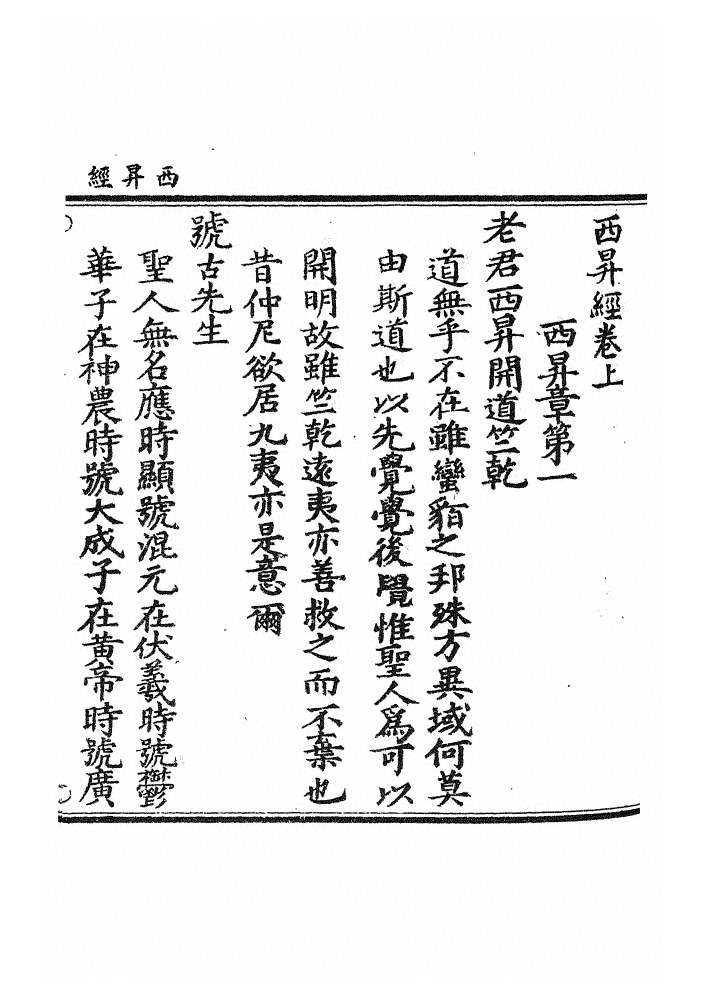 西昇經
西昇經卷上
西昇章第一
老君西昇開道竺乾
道無乎不在雖蠻貊之邦殊方異域何莫
由斯道也以先覺覺後覺惟聖人爲可以
開明故雖竺乾遠夷亦善救之而不棄也
昔仲尼欲居九夷亦是意爾
號古先生
聖人無名應時顯號混元在伏羲時號鬱
華子在神農時號大成子在黃帝時號廣